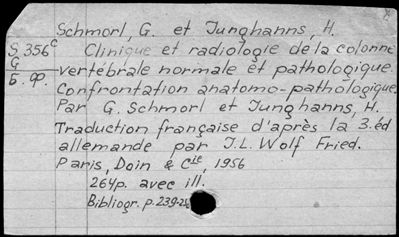 Schmorl, G. et Junghanns, H.
S 356c Clinique et radiologie de la colonne
G vertébrale normale et pathologique.
Б. ф. Confrontation anatomo-pathologique.
Par G. Schmorl et Junghanns, H.
Traduction française d'après la 3. éd
allemande par J.L. Wolf Fried.
Paris, Doin & Cie, 1956
264p. avec ill.
Bibliogr. p. 239-